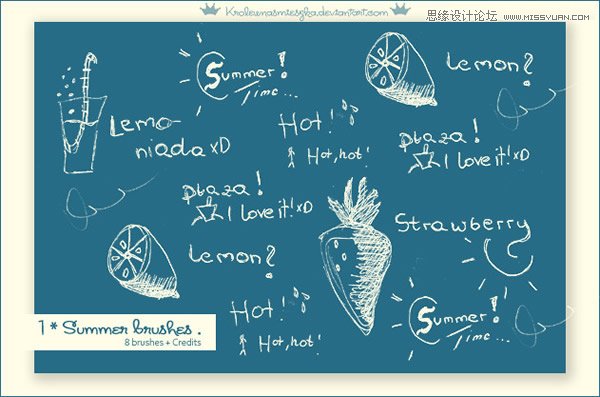 Krolewnasmieszka.deviantart.com
思缘设计论坛 WWW.MISSYUAN.COM
Summer!
Time...
Lemon?
Lemo-
niada xD
Hot!
Hot, hot!
plaza!
I love it! xD
plaza!
I love it! xD
Strawberry
Lemon?
Hot!
Hot, hot!
Summer!
Time...
1 * Summer brushes .
8 brushes + Credits